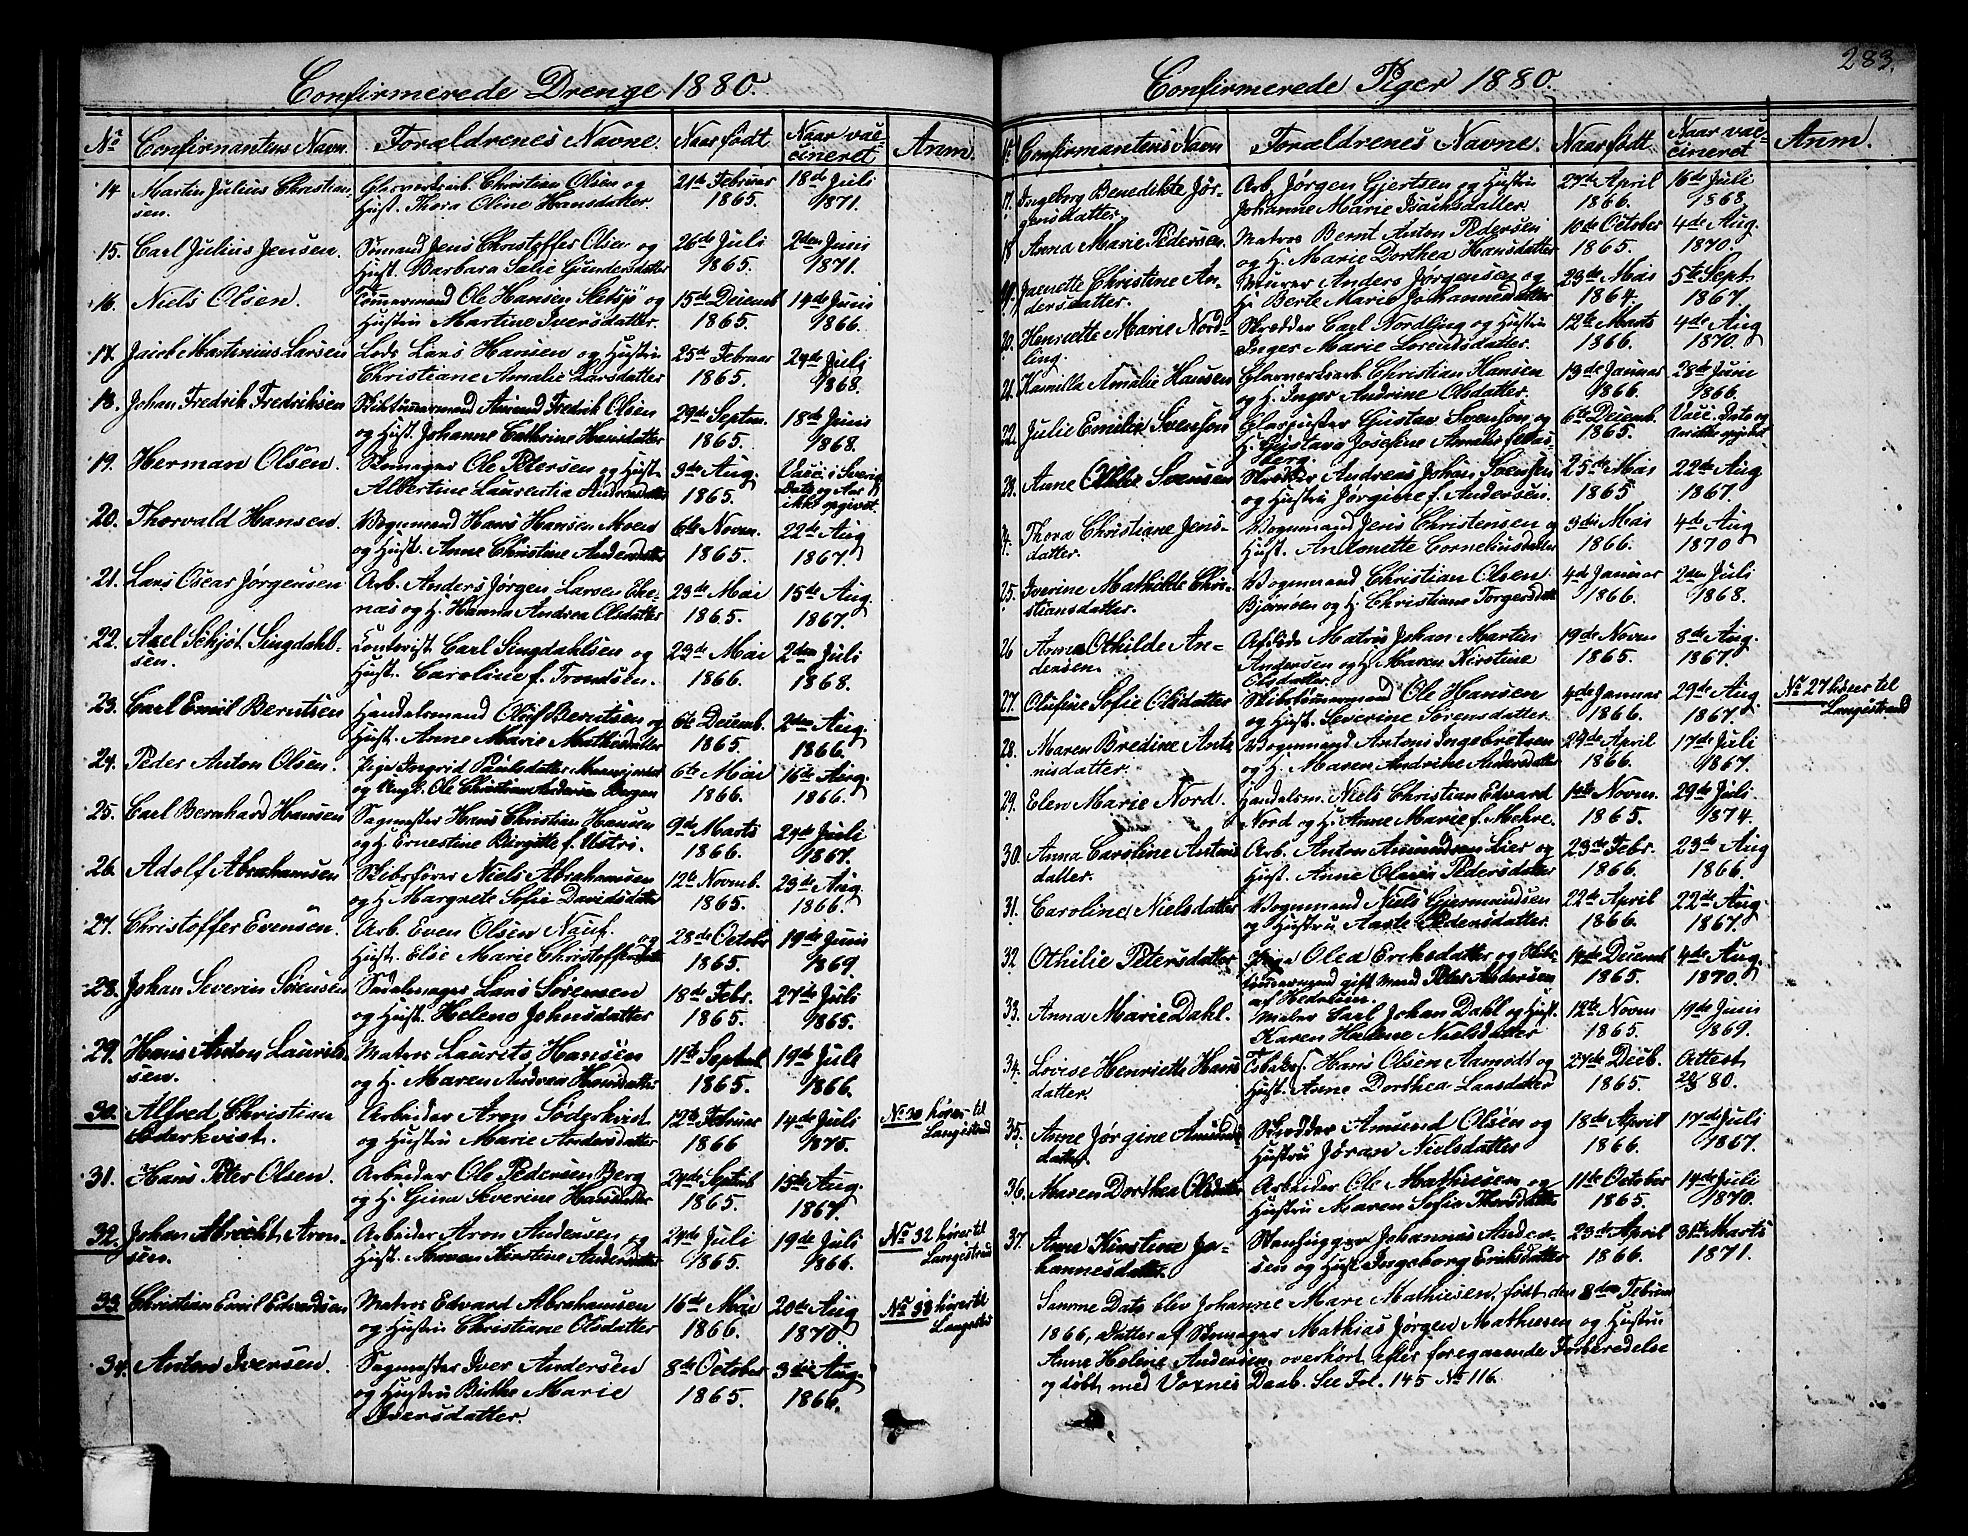 Confirmerede Drenge 1880.
No Confirmantens Navn. Forældrenes Navne. Naar født Naar vaccineret Anm.
14 Martin Julius Christiansen. Glarverksarb. Christian Olsen og 21de Februar 18de Juli
Hust. Thora Oline Hansdatter. 1865. 1871.
15. Carl Julius Jensen. Sømand Jens Christoffer Olsen og 26de Juli 2den Juni
Hust. Barbara Salie Gundersdatter 1865. 1871.
16. Niels Olsen. Tømmermand Ole Hansen og 15de Decemb 14de Juni
Hustru Martine Iversdatter. 1865. 1866.
17. Jacob Martinius Larsen Lods Lars Hansen og Hustru 25de Februar 29de Juli
Christiane Amalie Larsdatter 1865. 1868.
18. Johan Fredrik Fredriksen Skibtømmermand Amund Fredrik Olsen 29de Septm. 18de Juni
og Hust. Johanne Cathrine Hansdatter 1865. 1868.
19. Herman Olsen. Skomager Ole Petersen og Hust. 9de Aug. Vacc. i Sverig
Albertine Laurentia Andersdatter 1865. Dato og Aar ikke opgivet.
20. Thorvald Hansen. Vognmand Hans Hansen Moen 6te Novm. 22de Aug
og Hust. Anne Christine Andersdatter 1865. 1867.
21. Lars Oscar Jørgensen Arb. Anders Jørgen Larsen 23de Mai 15de Aug.
og H. Hanna Andrea Olsdatter 1865. 1867.
22. Axel Schjøt Singdahlsen. Contorist Carl Singdahlsen og 23de Mai 2den Juli
Hust. Caroline f. Trondsen. 1866. 1868.
23. Carl Emil Berntsen Handelsmand Olof Berntsen og 6te Decemb. 2den Aug.
Hust. Anne Marie Mathisdatter 1865. 1866.
24. Peder Anton Olsen. Pige Ingrid Paulsdatter 6te Mai 16te Aug.
og Ungk. Ole Christian Andersen Bergan 1866. 1866.
25. Carl Bernhard Hansen Sagmester Hans Christian Hansen 9de Marts 29de Juli
og H. Ernestine Birgitte f. 1866. 1867.
26. Adolf Abrahamsen Skibsfører Niels Abrahamsen 12te Novmb. 23de Aug.
og H. Margrete Sofie Davidsdatter 1865. 1866.
27. Christoffer Evensen. Arb. Even Olsen Nauf. og 28de Octobr 19de Juni
Hust. Else Marie Christoffersdatter 1865. 1869.
28. Johan Severin Sørensen Sadelmager Lars Sørensen 18de Febr. 27de Juli
og Hust. Helene Johnsdatter 1865. 1865.
29. Hans Anton Lauritssen. Matros Laurits Hansen 11te Septbr 19de Juli
og H. Maren Andrea Hansdatter 1865. 1866.
30. Alfred Christian Søderkvist. Arbeider Aron Søderkvist 12te Februar 14de Juli No 30 hører til
og Hustru Marie Andersdatter 1866 1870. Langestrand
31. Hans Peter Olsen. Arbeider Ole Pedersen Berg 24de Septbr 15de Aug.
og H. Gina Severine Hansdatter 1865. 1867.
32. Johan Albrecht Aronsen. Arbeider Aron Andersen og 24de Juli 19de Juli No 32 hører til
Hust. Maren Kirstine Andersdatter 1865. 1866. Langestrad
33 Christian Emil Edvardsen Matros Edvard Abrahamsen 16de Mai 20de Aug No 33 hører til
og Hustru Christiane Olsdatter 1866. 1870. Langestr
34. Anton Iversen. Sagmester Iver Andersen 8de October 3die Aug.
og Hustru Birthe Marie 1865. 1866.
Iversdatter.
283.
Confirmerede Piger 1880.
No Confirmantens Navn Forældrenes Navne. Naar født Naar vaccineret Anm.
17. Ingeborg Benedikte Jørgensdatter. Arb. Jørgen Gjertsen og Hustru 27de April 16de Juli
Johanne Marie Isachsdatter 1866. 1868.
18 Anna Marie Pedersen. Matros Bernt Anton Pedersen 10de October 4de Aug.
og H. Marie Dorthea Hansdatter 1865. 1870.
19. Jeanette Christine Andersdatter. Murer Anders Jørgensen og 23de Mai 5te Sept
H. Berte Marie Johannesdatter 1864. 1867.
20. Henriette Marie Nordling. Skrædder Carl Nordling og Hustru 12te Marts 4de Aug
Inger Marie Lorendsdatter. 1866. 1870.
21. Kamilla Amalie Hansen Glarverksarb. Christian Hansen 19de Januar 28de Juni
og H. Inger Andrine Olsdatter. 1866. 1866.
22. Julie Emelie Svensson Glarpuster Gustav Svensson og 6te Decemb. Vacc. Dato og
H. Gustava Josefine Amalie 1865. Aar ikke opgivet.
23. Anne Othilie Svensen Skrædder Andreas Johan Svensen 25de Mai 22de Aug
og Hustru Jørgine f. Andersen. 1865 1867.
24. Thora Christiane Jensdatter. Vognmand Jens Christensen og 3die Mai 4de Aug
Hust. Antonette Corneliusdatter 1866. 1870
25. Iverine Mathilde Christiansdatter. Vognmand Christian Olsen 4de Januar 2den Juli
Bjørnøen og H. Christiane Torgersdatt 1866. 1868.
26 Anna Othilde Andersen. Afdøde Matros Johan Martin 19de Novm 8de Aug.
Andersen og H. Maren Kirstine 1865. 1867.
Olsdatter.
27. Olufine Sofie Olsdatter Skibstømmermand Ole Hansen 4de Januar 29de Aug. No 27 hører til
og Hust. Severine Sørensdatter. 1866. 1867. Langestrand
28. Maren Bredine Antonisdatter. Vognmand Antonis Ingebretsen 24de April 17de Juli
og H. Maren Andrine Andersdatter 1866. 1867.
29. Elen Marie Nord. Handelsm. Niels Christian Edvard 14de Novm. 29de Juli
Nord og H. Anne Marie f. Mehre. 1865. 1874.
30. Anna Caroline Antonisdatter. Arb. Anton Amundsen Lier og 23de Febr. 23de Aug
Hust. Anne Olava Pedersdatter 1866. 1866.
31. Caroline Nielsdatter Vognmand Niels Gjermundsen 22de April 22de Aug.
og Hustru Aaste Pedersdatter. 1866. 1867.
32 Othilie Petersdatter Pige Olea Eriksdatter og Skibstømmermand gift Mand Peter Andersen 14de Decemb 4de Aug.
af Hedrum. 1865. 1870.
33. Anna Marie Dahl. Maler Carl Johan Dahl og Hust. 12te Novm 19de Juni
Karen Helene Nielsdatter 1865. 1869.
34. Lovise Henriette Hansdatter. Hans Olsen Aamodt og 27de Decb. Attest
Hust. Anne Dorthea Larsdatter 1865. 80.
35. Anne Jørgine Amundsdatter. Skrædder Amund Olsen og 18de April 17de Juli
Hustru Jøran Nielsdatter 1866. 1867.
36. Maren Dorthea Olsdatter Arbeider Ole Mathiesen og 11te October 14de Juli
Hustru Maren Sofie Thorsdatter 1865. 1870.
37. Anne Kirstine Johannesdatter. Stenhugger Johannes Andersen og Hust Ingeborg Eriksdatter 23de April 31te Marts
1866. 1871.
Samme Dato blev Johanne Marie Mathiesen, født den 8den Februar
1866, Datter af Skomager Mathias Jørgen Mathiesen og Hustru
Anne Helene Andersen, overhørt efter foregaaende Forberedelse
og døbt med Voxnes Daab. See Fol. 145 No 116.